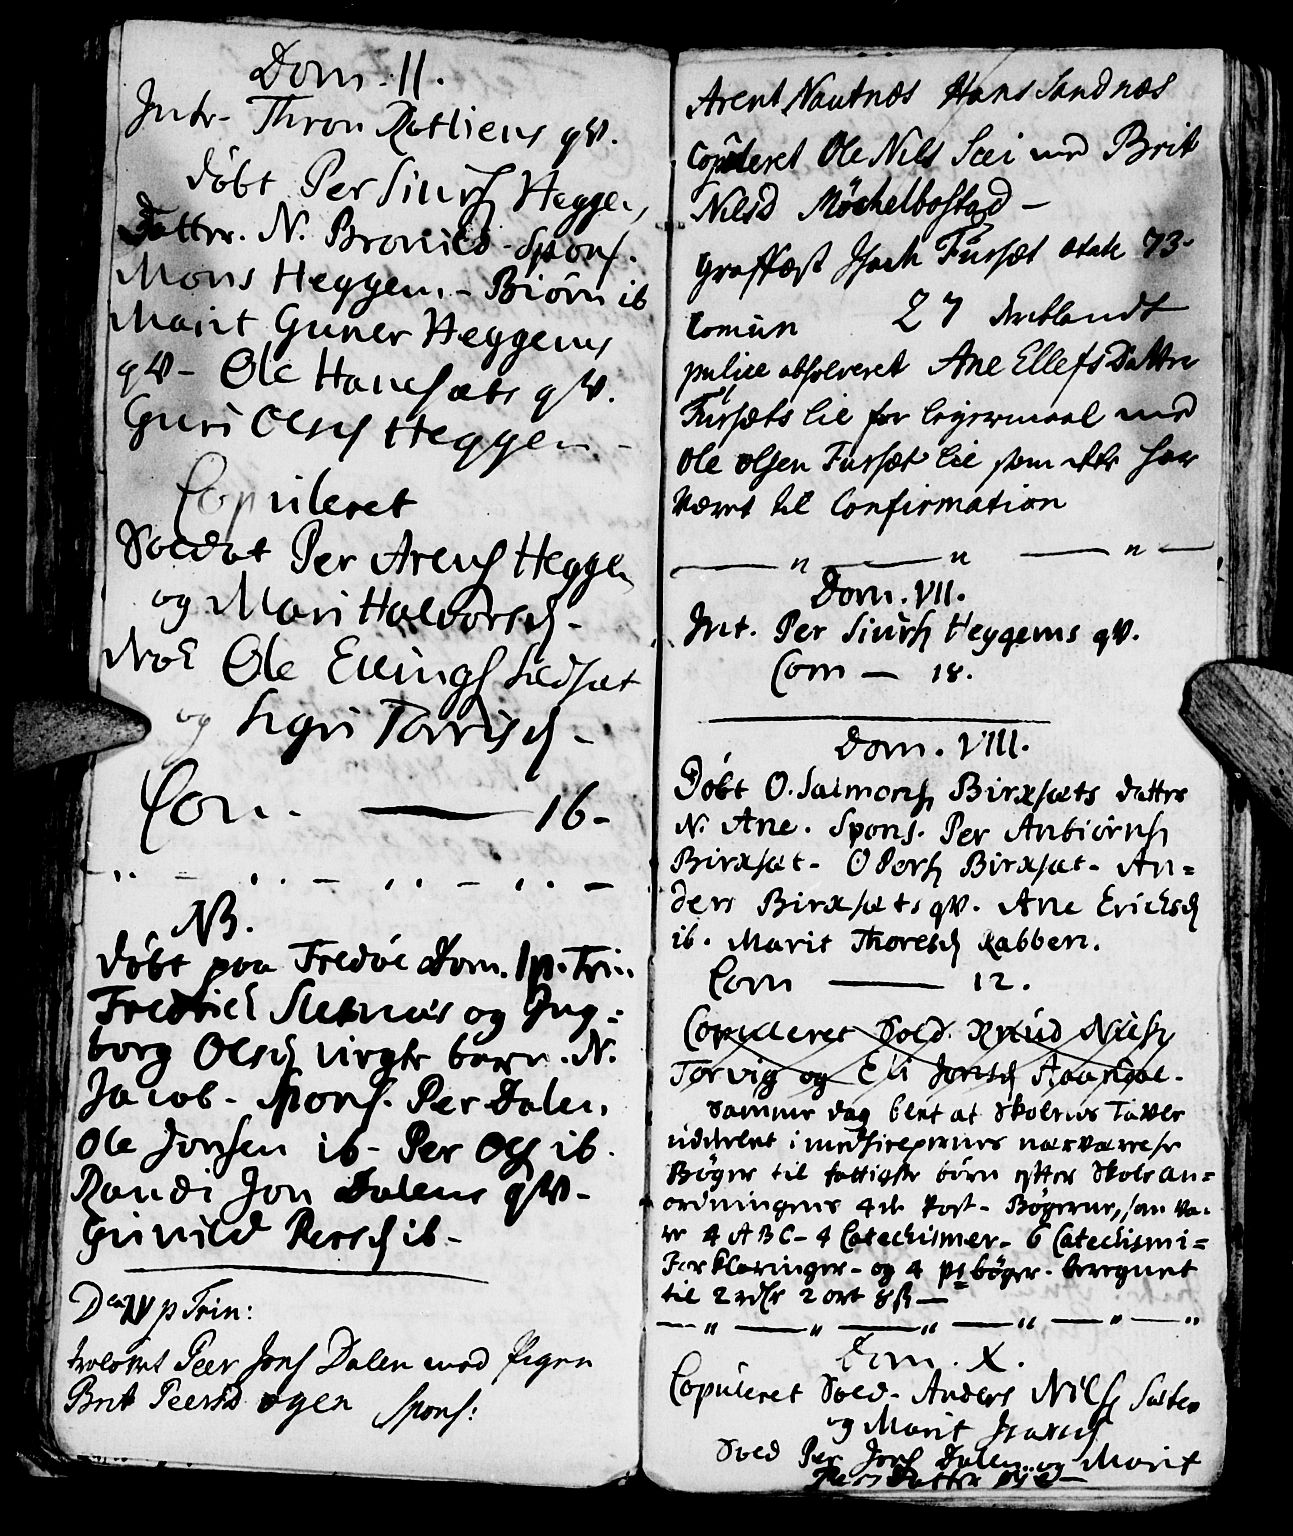 Dom. II.
Intr. Thron Rotliens qv.
døbt Per Siurs Heggen,
datter. N. Bronild. Spons.
Mons Heggem. - Biørn ib
Marit Guner Heggems
qv - Ole Hansæts qv.
Guri Olsd Heggem -
Copuleret
Soldat Per Arens Heggem
og Mari Halvorsd. -
Ole Ellings Sædsæt
og Sigri Torrisd -
Com. — 16 -
NB.
døbt paa Fredøe Dom. p. Trin
Fredrich og Ing=
borg Olsd uegte barn. N.
Jacob - Spons. Per Dalen,
Ole Jonsen ib - Per Ols ib.
Randi Jon Dalens qv -
Gunild Persd ib -
D IV p Trin:
trolovet Peer Jons Dalen med Pigen
Brit Peersd øyen Spons:
Arent Nautnæs Hans Sandnæs
Copuleret Ole Nils Sæi med Brit
Nilsd Möchelbostad -
Graffæst Isach Fursæt ætat 73-
Comun 27 iblandt
publice absolveret Ane Ellefsdatter
Fursæts lie for leyermaal med
Ole Olsen Fursæt lie som ikke har
været til Confirmation
Dom. VII.
Int. Per Siurs Heggems qv.
Com — 18.
Dom. VIII.
Døbt O. Salmons Birksæts datter
N. Ane. Spons. Per Anbiörns
Birksæt - O Pers Birksæt - An=
ders Birksæts qv. Ane Erichsd
ib. Marit Thoresd Rabben.
Com — 12.
Copuleret Sold. Knud Nils
Torvig og Eli Jonsd Aandal -
Samme dag blev at Skolens Tavle
uddeelet i medhielpernes nærværelse
Bøger til fattigste børn efter Skole an=
ordningens 4de Post - Bøgerne, som va-
re 4 ABC - 4 Catechismer - 6 Catechismi=
Forklaringer - og 4 ps bøger - beregnet
til 2 rdlr 2 ort 8 ß —
Dom. X.
Copuleret Sold - Anders Nils
og Marit
Sold Per Jons Dalen og Marit
Persdatter øye —